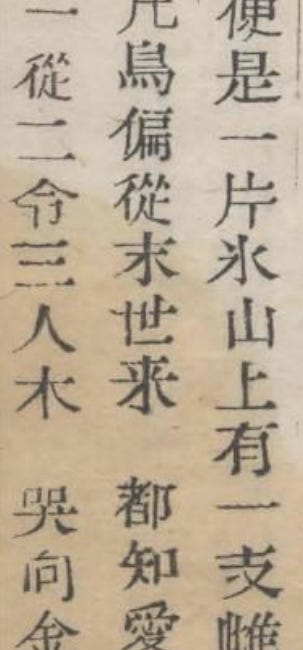 便是一片氷山上有一支雌
凡鳥偏從末世来 都知愛
一從二令三人木 哭向金